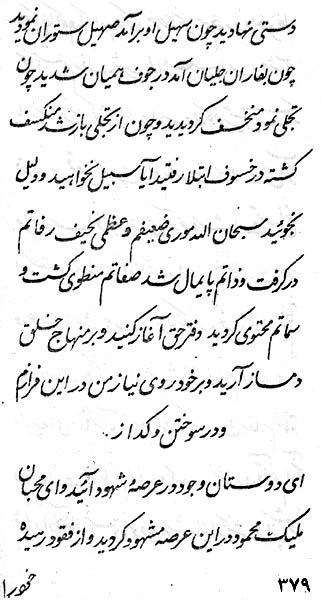 دستی نهادید چون سهیل او برآمد صهیل ستوران نمودید
چون بفاران جلیان آمد در جوف همیان شدید چون
تجلی نمود منخسف کردیدید و چون از تجلی باز شد منکسف
کشته در خسوف ابتلا رفتید آیا سبیل نخواهید و دلیل
نجوئید سبحان الله موری ضعیفم و عظمی نحیف رفاتم
در کرفت و ذاتم پایمال شد صفاتم منطوی کشت و
سماتم محتوی کردید دفتر حق آغاز کنید و بر منهاج خلق
دمساز آرید و بر خود روی نیاز من در این فرازم
و در سوختن و کداز.
ای دوستان وجود در عرصهٔ شهود آئید و ای محبان
ملیک محمود در این عرصه مشهود کردید و از فقود رسیده
خود را
۳۷۹